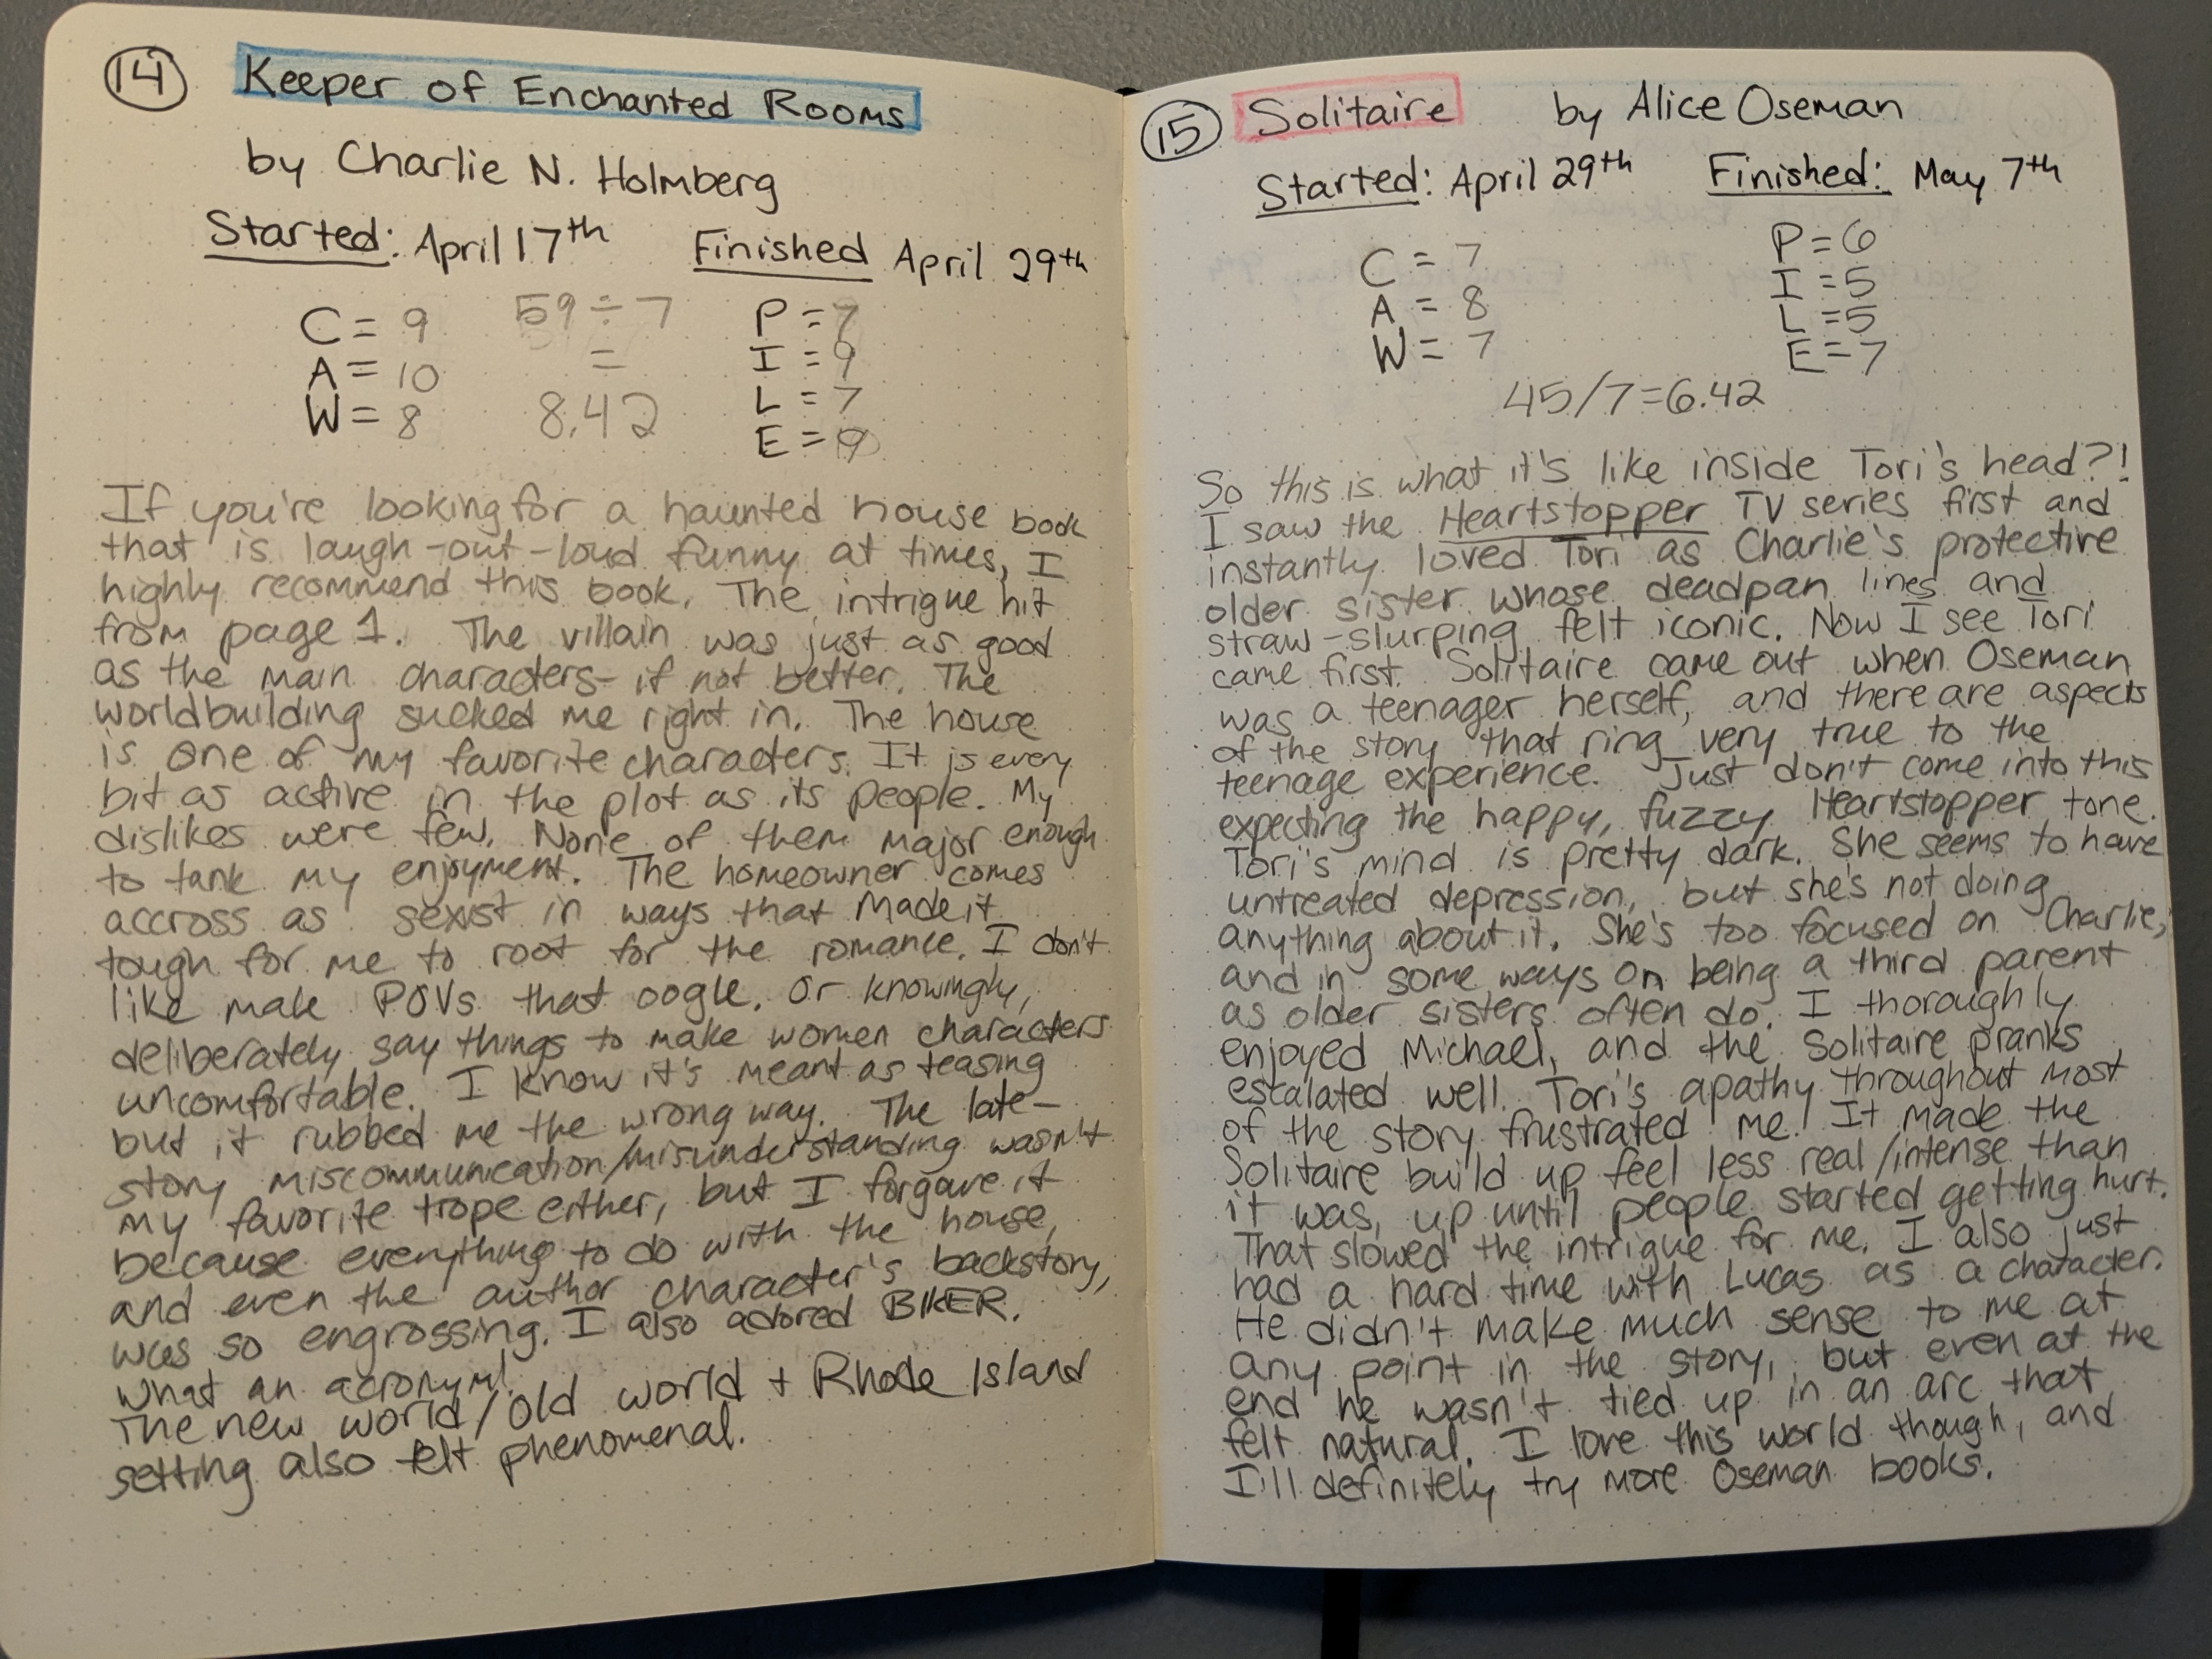 14 Keeper of Enchanted Rooms
by Charlie N. Holmberg
Started: April 17th Finished April 29th
C = 9 59 ÷ 7 P = 7
A = 10 = I = 9
W = 8 8.42 L = 7
E = 9
If you're looking for a haunted house book
that is laugh-out-loud funny at times, I
highly recommend this book. The intrigue hit
from page 1. The villain was just as good
as the main characters - if not better. The
worldbuilding sucked me right in. The house
is one of my favorite characters. It is every
bit as active in the plot as its people. My
dislikes were few. None of them major enough
to tank my enjoyment. The homeowner comes
accross as sexist in ways that made it
tough for me to root for the romance. I don't
like male POVs that oogle. Or knowingly,
deliberately say things to make women characters
uncomfortable. I know it's meant as teasing
but it rubbed me the wrong way. The late-
story miscommunication/misunderstanding wasn't
my favorite trope either, but I forgave it
because everything to do with the house,
and even the author character's backstory,
was so engrossing. I also adored BIKER.
What an acronym!
The new world/old world + Rhode Island
setting also felt phenomenal.
15 Solitaire by Alice Oseman
Started: April 29th Finished: May 7th
C = 7 P = 6
A = 8 I = 5
W = 7 L = 5
E = 7
45/7=6.42
So this is what it's like inside Tori's head?!
I saw the Heartstopper TV series first and
instantly loved Tori as Charlie's protective
older sister whose deadpan lines and
straw-slurping felt iconic. Now I see Tori
came first. Solitaire came out when Oseman
was a teenager herself, and there are aspects
of the story that ring very true to the
teenage experience. Just don't come into this
expecting the happy, fuzzy Heartstopper tone.
Tori's mind is pretty dark. She seems to have
untreated depression, but she's not doing
anything about it. She's too focused on Charlie,
and in some ways on being a third parent
as older sisters often do. I thoroughly
enjoyed Michael, and the Solitaire pranks
escalated well. Tori's apathy throughout most
of the story frustrated me. It made the
Solitaire build up feel less real/intense than
it was, up until people started getting hurt.
That slowed the intrigue for me. I also just
had a hard time with Lucas as a character.
He didn't make much sense to me at
any point in the story, but even at the
end he wasn't tied up in an arc that
felt natural. I love this world though, and
I'll definitely try more Oseman books.